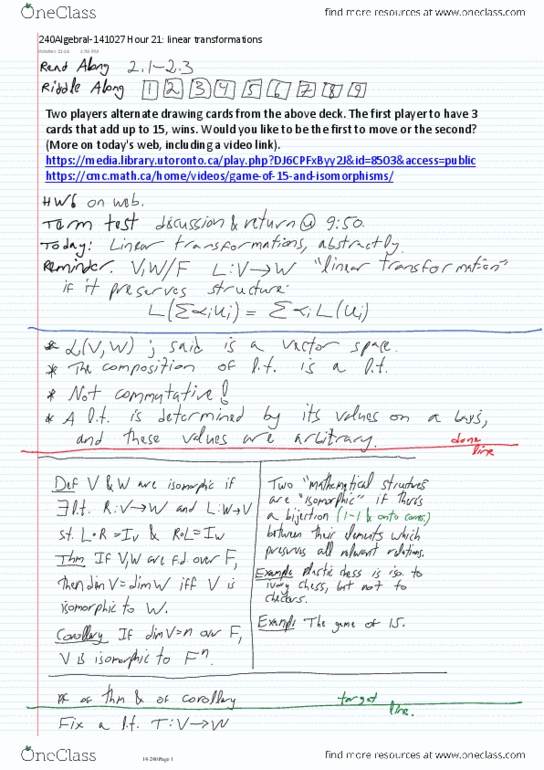 OneClass
find more resources at www.oneclass.com
240AlgebraI-141027 Hour 21: linear transformations
Read Along 2.1-2.3
Riddle Along 1 2 3 4 5 6 7 8 9
Two players alternate drawing cards from the above deck. The first player to have 3
cards that add up to 15, wins. Would you like to be the first to move or the second?
(More on today's web, including a video link).
https://media.library.utoronto.ca/play.php?DJ6CPFxByy2J&id=8503&access=public
https://cmc.math.ca/home/videos/game-of-15-and-isomorphisms/
HW6 on web.
Term test discussion & return @ 9:50.
Today: Linear transformations, abstractly.
Reminder. V,W/F L:V→W "linear transformation"
if it preserves structure:
L(Σαᵢuᵢ) = Σαᵢ L(uᵢ)
* L(V,W) ; said is a vector space.
* The composition of l.t. is a l.t.
* Not commutative!
* A l.t. is determined by its values on a basis,
and these values are arbitrary.
done
line
Def V & W are isomorphic if
∃ l.t. R:V→W and L:W→V
s.t. L∘R = I_V & R∘L = I_W
Thm If V,W are f.d. over F,
then dim V = dim W iff V is
isomorphic to W.
Corollary If dim V = n over F,
V is isomorphic to Fⁿ.
Two "mathematical structures
are "isomorphic" if there's
a bijection (1-1 & onto corres.)
between their elements which
preserves all relevant relations.
Example plastic chess is iso. to
ivory chess, but not to
checkers.
Example The game of 15.
* of thm & of corollary
target
line.
Fix a l.t. T:V→W
OneClass
14-240 Page 1
find more resources at www.oneclass.com